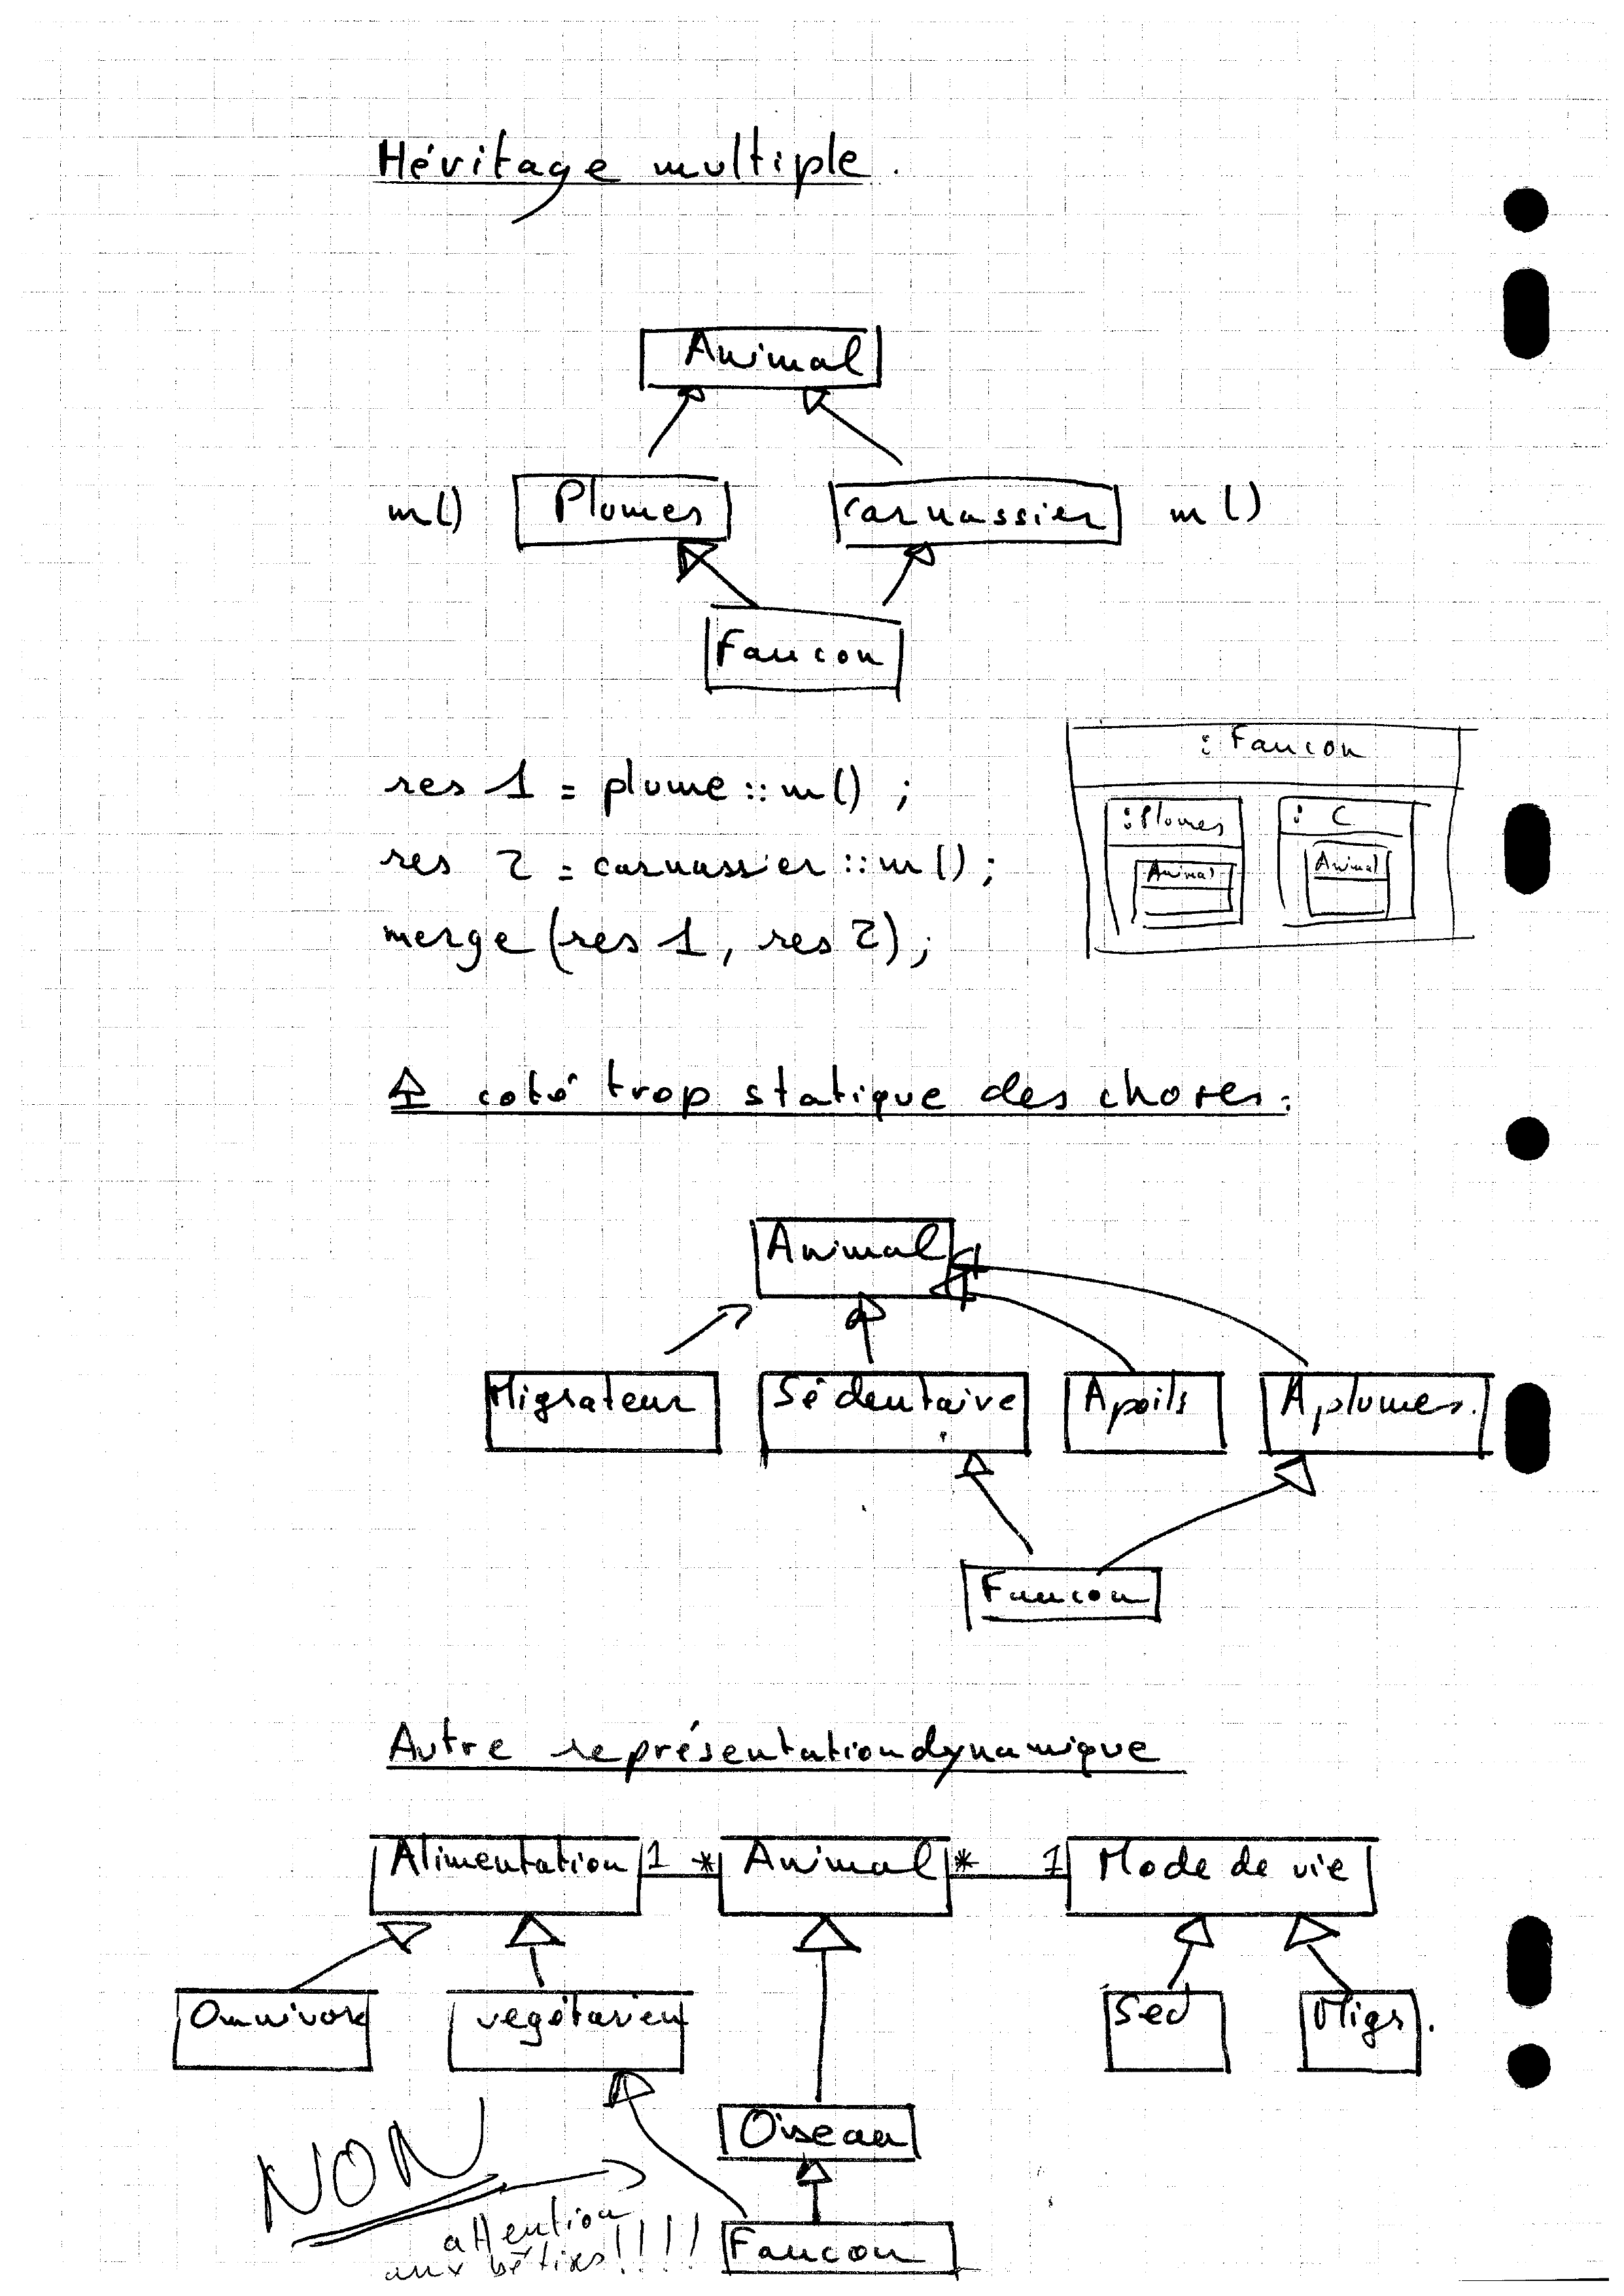 Héritage multiple.
Animal
m() Plumes carnassier m()
Faucon
: Faucon
:Plumes : C
Animal Animal
res 1 = plume::m() ;
res 2 = carnassier::m() ;
merge (res 1, res 2) ;
coté trop statique des choses.
Animal
Migrateur Sédentaire A poils A plumes.
Faucon
Autre représentation dynamique
Alimentation 1 * Animal * 1 Mode de vie
Omnivore végétarien Sed Migr.
Oiseau
NON
attention
aux bêtises!!!!
Faucon